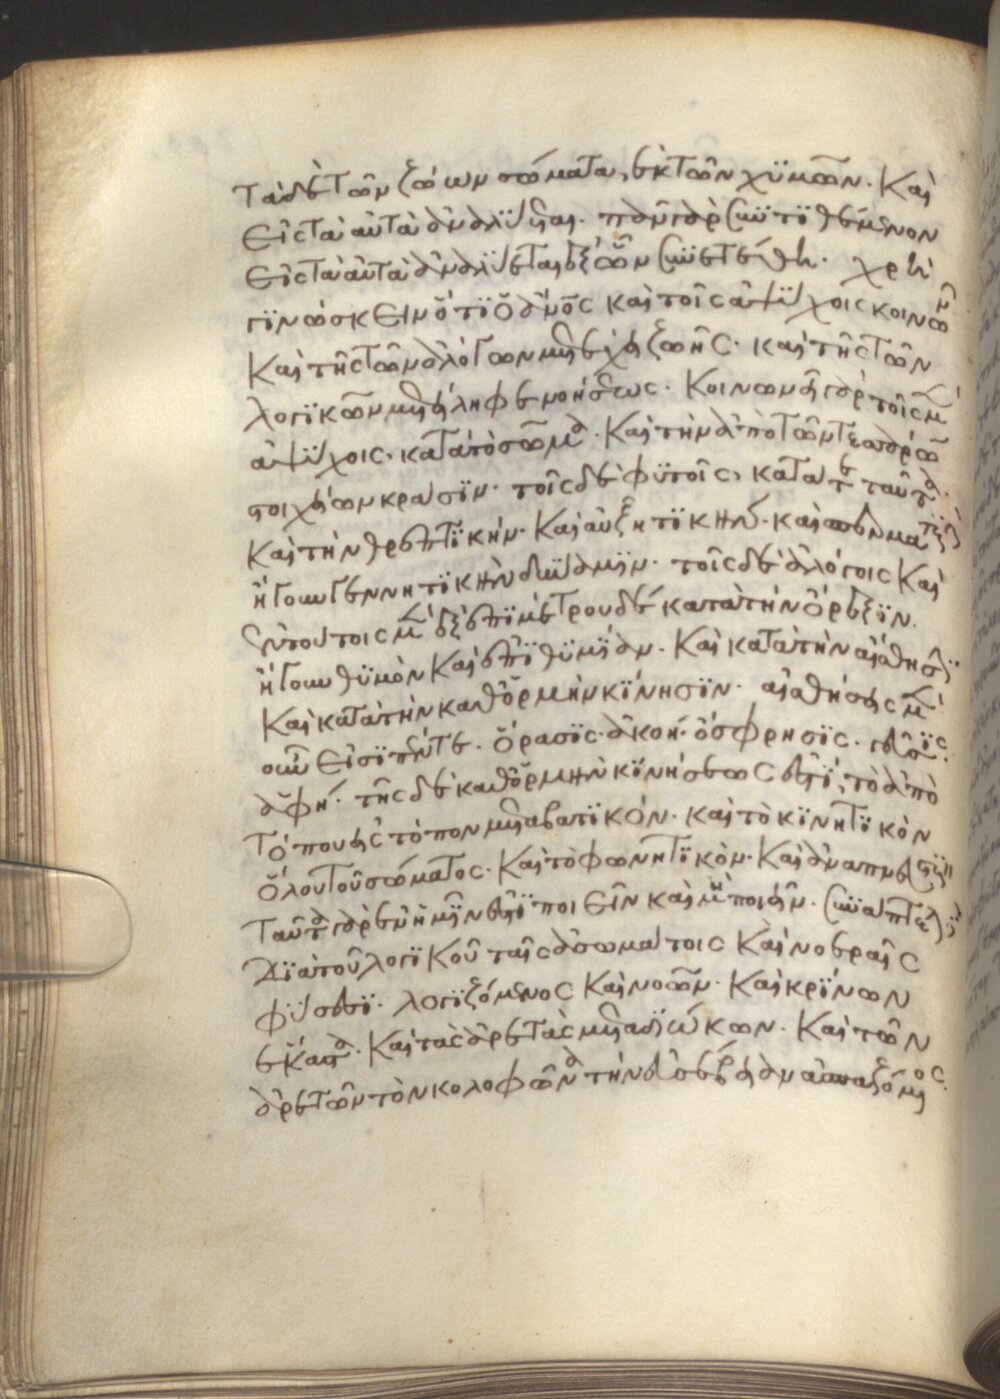 τὰ δὲ τῶν ζώων σώματα, ἐκ τῶν χϋμῶν. καὶ
εἰς τὰ αὐτὰ ἀναλΰεται. πᾶν γὰρ συντϊθέμενον
εἰς τὰ αὐτὰ ἀναλΰεται ἐξ ὧν συνετέθη. χρὴ
γϊνώσκειν ὅτϊ ὁ ἄνος καὶ τοῖς ἀψΰχοις κοινωνεῖ
καὶ τῆς τῶν ἀλόγων μετέχει ζωῆς. καὶ τῆς τῶν
λογϊκῶν μετείληφε νοήσεως. κοινωνεῖ γὰρ τοῖς μὲν
ἀψΰχοις. κατὰ τὸ σῶμα. καὶ τὴν ἀπὸ τῶν τεσσάρων
στοιχείων κρᾶσϊν. τοῖς δὲ φϋτοῖς, κατά τε ταῦτα.
καὶ τὴν θρεπτϊκήν. καὶ αὐξητϊκήν. καὶ σπερματϊκὴν
ἤγουν γεννητϊκὴν δύναμϊν. τοῖς δὲ ἀλόγοις καὶ
ἐν τούτοις μὲν ἐξ ἐπϊμέτρου δὲ κατὰ τὴν ὄρεξϊν.
ἤγουν θϋμὸν καὶ ἐπϊθϋμΐαν. καὶ κατὰ τὴν αἴσθησϊν
καὶ κατὰ τὴν καθ' ὁρμὴν κΐνησϊν. αἰσθήσεις μὲν
οὖν εἰσϊ πέντε. ὅρασϊς. ἀκοή. ὄσφρησϊς. γεῦσϊς.
ἀφή. τῆς δὲ καθ' ὁρμὴν κϊνήσεως ἐστϊ, τὸ ἀπὸ
τόπου εἰς τόπον μεταβατϊκόν. καὶ τὸ κϊνητϊκὸν
ὅλου τοῦ σώματος. καὶ τὸ φωνητϊκόν. καὶ ἀναπνευστϊκόν
ταῦτα γὰρ ἐν ἡμῖν ἐστϊ ποιεῖν καὶ μὴ ποιεῖν. συνάπτεται
δϊὰ τοῦ λογϊκοῦ ταῖς ἀσωμάτοις καὶ νοεραῖς
φΰσεσϊ. λογϊζόμενος καὶ νοῶν. καὶ κρϊνων
ἕκαστα. καὶ τὰς ἀρετὰς μεταδϊώκων. καὶ τῶν
ἀρετῶν τὸν κολοφῶνα τὴν εὐσέβειαν ἀσπαζόμενος.